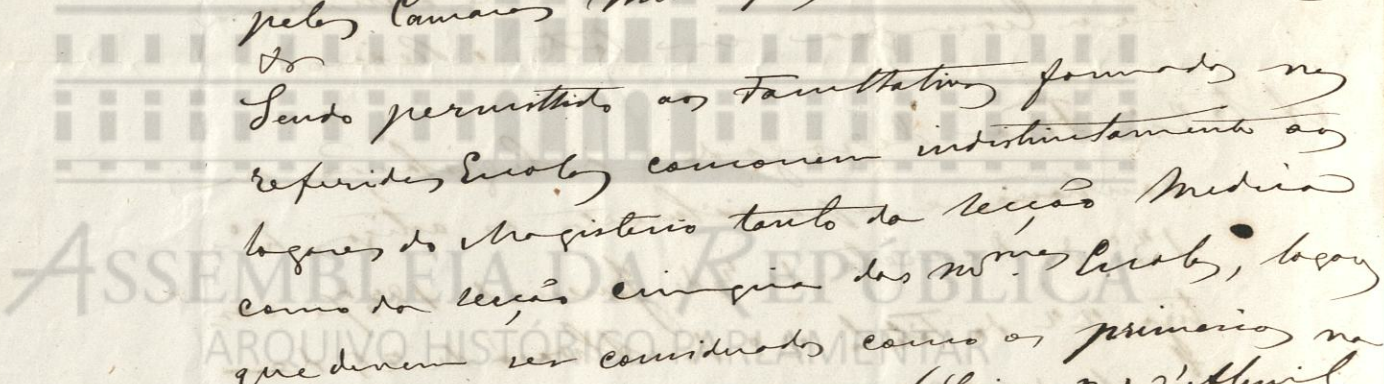 pelas Camaras
Sendo permittido aos Facultativos formados nas
referidas Escolas concorrerem indistinctamente aos
logares do Magisterio tanto da secção Medica
como da secção cirurgica das m.mas Escolas, logares
que devem ser considerados como os primarios na
ASSEMBLEIA DA REPÚBLICA
ARQUIVO HISTÓRICO PARLAMENTAR